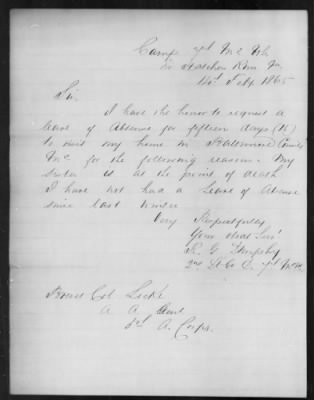 Camp 7th Md Vols
Feby 1865
Sir.
I have the honor to request a
leave of Absence for fifteen days (15)
to visit my home in Baltimore County
Md. for the following reason. My
sister is at the point of death
I have not had a Leave of Absence
since last winter
Very Respectfully
Your obdt Servt
R. G.
2nd Lt Co C. 7th Md
Brevet Col Locke
A. A. Genl
5th A. Corps.